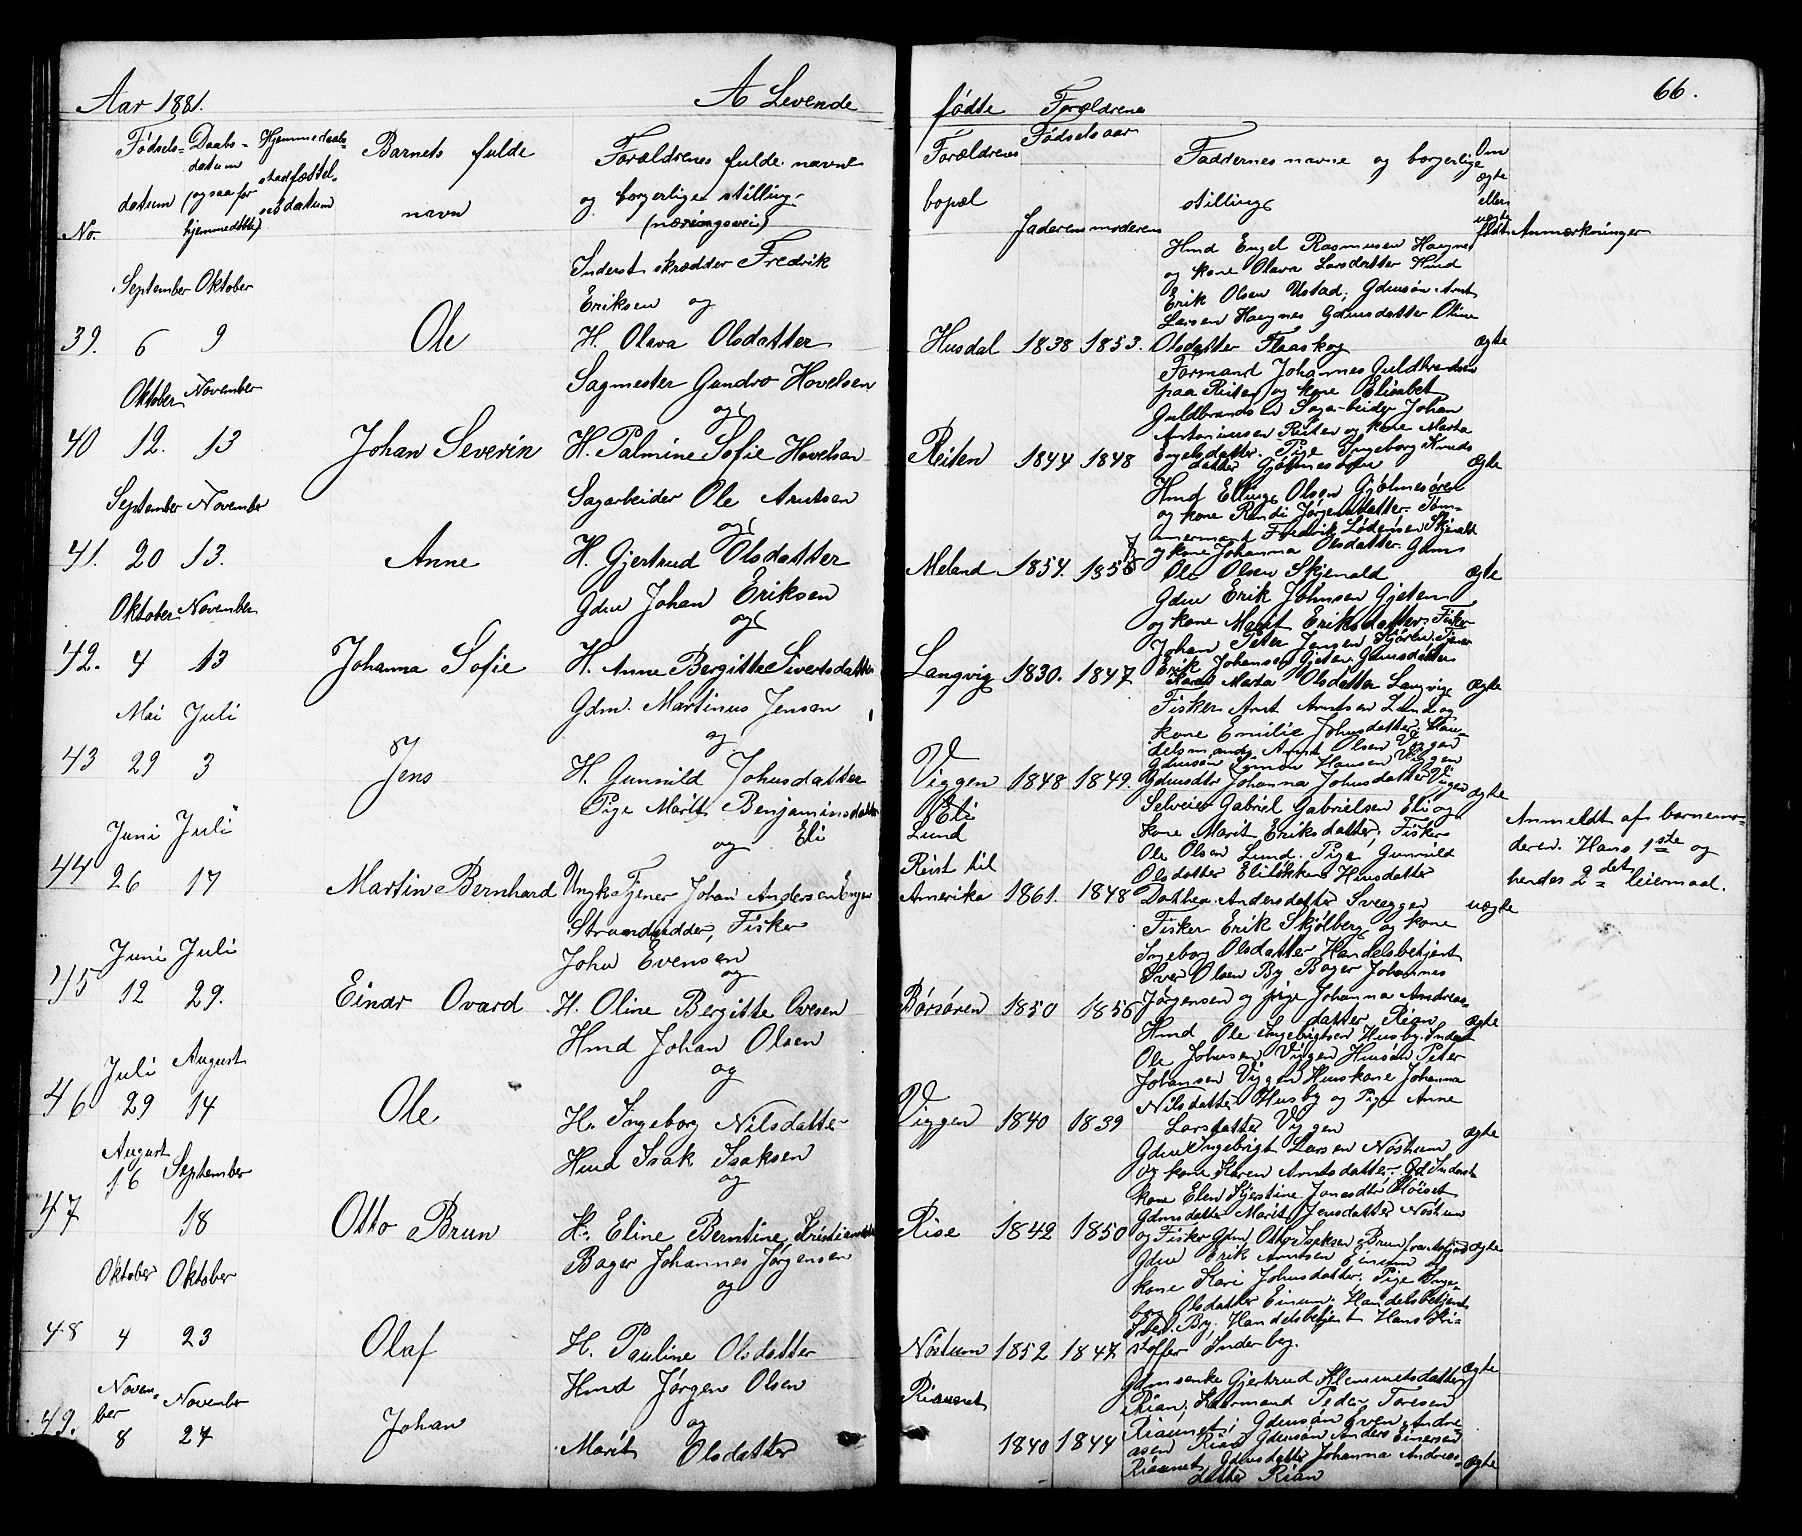 Aar 1881.
A Levende
fødte
Forældrenes
66.
No.
Fødsels-
datum
Daabs-
datum
(ogsaa for
hjemmedøbte)
Hjemmedaabs
stadfæstel-
sesdatum
Barnets fulde
navn
Forældrenes fulde navne
og borgerlige stilling
(næringsvei)
Forældrenes
bopæl
Fødselsaar
faderens moderens
Faddernes navne og borgerlige
stilling
Om
ægte
eller
uægte
født
Anmærkninger
September Oktober
39. 6 9
Ole
Inderst skrædder Fredrik
Eriksen og
H. Olava Olsdatter
Husdal 1838 1853.
Hmd Engel Rasmusen Haugnes
og kone Olava Larsdatter Hmd
Erik Olsen Ustad, Gdmsøn Arnt
Larsen Haugnes Gdmsdatter Oline
Olsdatter Flaaskog
ægte
Oktober November
40 12. 13
Johan Severin
Sagmester Gundro Hovelsen
og
H. Palmine Sofie Hovelsen
Reiten 1844 1848
Formand Johannes Guldbrandsen
paa Reiten og kone Elisabet
Guldbrandsen Sagarbeider Johan
Antoniusen Reiten og kone Marta
Engelsdatter. Pige Ingeborg Knuds
datter Gjølmesøren
Ægte
September November
41. 20 13.
Anne
Sagarbeider Ole Arntsen
og
H. Gjertrud Olsdatter
Meland 1854.
Hmd Ellings Olsen Gjølmesøren
og kone Randi Jørgensdatter. Tøm-
mermand Fredrik Lødensen Skjenald
og kone Johanna Olsdatter. Gdms
Ole Olsen Skjenald
ægte
Oktober November
42. 4 13
Johanna Sofie
Gdm Johan Eriksen
og
H. Anne Bergitte Sivertsdatter
Langvig 1830. 1847
Gdm Erik Johnsen Gjeten
og kone Marit Eriksdatter. Fisker
Johan Peter Jensen
Erik Johansen Gjeten. Gdmsdatter
Marta Olsdatter Langvig
Ægte
Mai Juli
43 29 3
Jens
Gdm. Martinus Jensen
og
H. Gunnild Johnsdatter
Viggen 1848 1849.
Fisker Arnt Arntsen Lund og
kone Emilie Johnsdatter, Han-
delsmand Arnt Olsen Viggen
Gdmsøn Simon Hansen Viggen
Gdmsdtr Johanna Johnsdatter Viggen
ægte
Juni Juli
44 26 17
Martin Bernhard
Pige Marit Benjaminsdatter
og Eli
Ungk Tjener Johan Andersen
Eli
Lund
Reist til
Amerika 1861. 1848
Selveier Gabriel Gabrielsen Eli og
kone Marit Eriksdatter, Fisker
Ole Olsen Lund. Pige Gunnild
Olsdatter
Dothea Andersdatter Sveggen
uægte
Anmeldt af barnemo-
deren. Hans 1ste og
hendes 2det leiermaal.
Juni Juli
45 12 29.
Einar Ovard
Strandsidder, Fisker
John Evensen
og
H. Oline Bergitte Ovesen
Børsøren 1850 1856
Fisker Erik Skjølberg og kone
Ingeborg Olsdatter Handelsbetjent
Iver Olsen By Bager Johannes
Jørgensen og pige Johanna Andreas-
datter Rian
ægte
Juli August
46 29 14
Ole
Hmd Johan Olsen
og
H. Ingeborg Nilsdatter
Viggen 1840 1839
Hmd Ole Ingebrigtsen Husby. Inderst
Ole Johnsen Viggen Hmsøn Peter
Johansen Viggen Hmskone Johanna
Nilsdatter Husby og Pige Anne
Larsdatter Viggen
ægte
August
16 September
47 18
Otto Brun
Hmd Isak Isaksen
og
H. Eline Berntine Kristiansdtr
Rise 1842 1850
Gdm Ingebrigt Larsen Nøstum
og kone Karen Arntsdatter. Inderst
kone Elen Kjerstine Jonasdtr
Gdmsdatter Marit Jensdatter Nøstum
og Fisker Gdm Otto Isaksen Brun
ægte
Oktober Oktober
48 4 23
Olaf
Bager Johannes Jørgensen
og
H. Pauline Olsdatter
Nøstum 1852 1847
Gdm Erik Arntsen Einum og
kone Kari Johnsdatter, Pige Inge-
borg Olsdatter Einum. Handelsbetjent
Iver By, Handelsbetjent Hans Kri-
stoffer Inderberg.
ægte
Novem-
ber November
49. 8 27
Johan
Hmd Jørgen Olsen
og
Marit Olsdatter
Riannet
1840 1844
Gdmsenke Gjertrud Klemmetsdatter
Rian, Kaarmand Peder Toresen
Riannet, Gdmsøn Even Andre
asen Rian Gdmsøn Anders Einersen
Riannet, Gdmsdatter Johanna Andreas-
datter Rian
Ægte